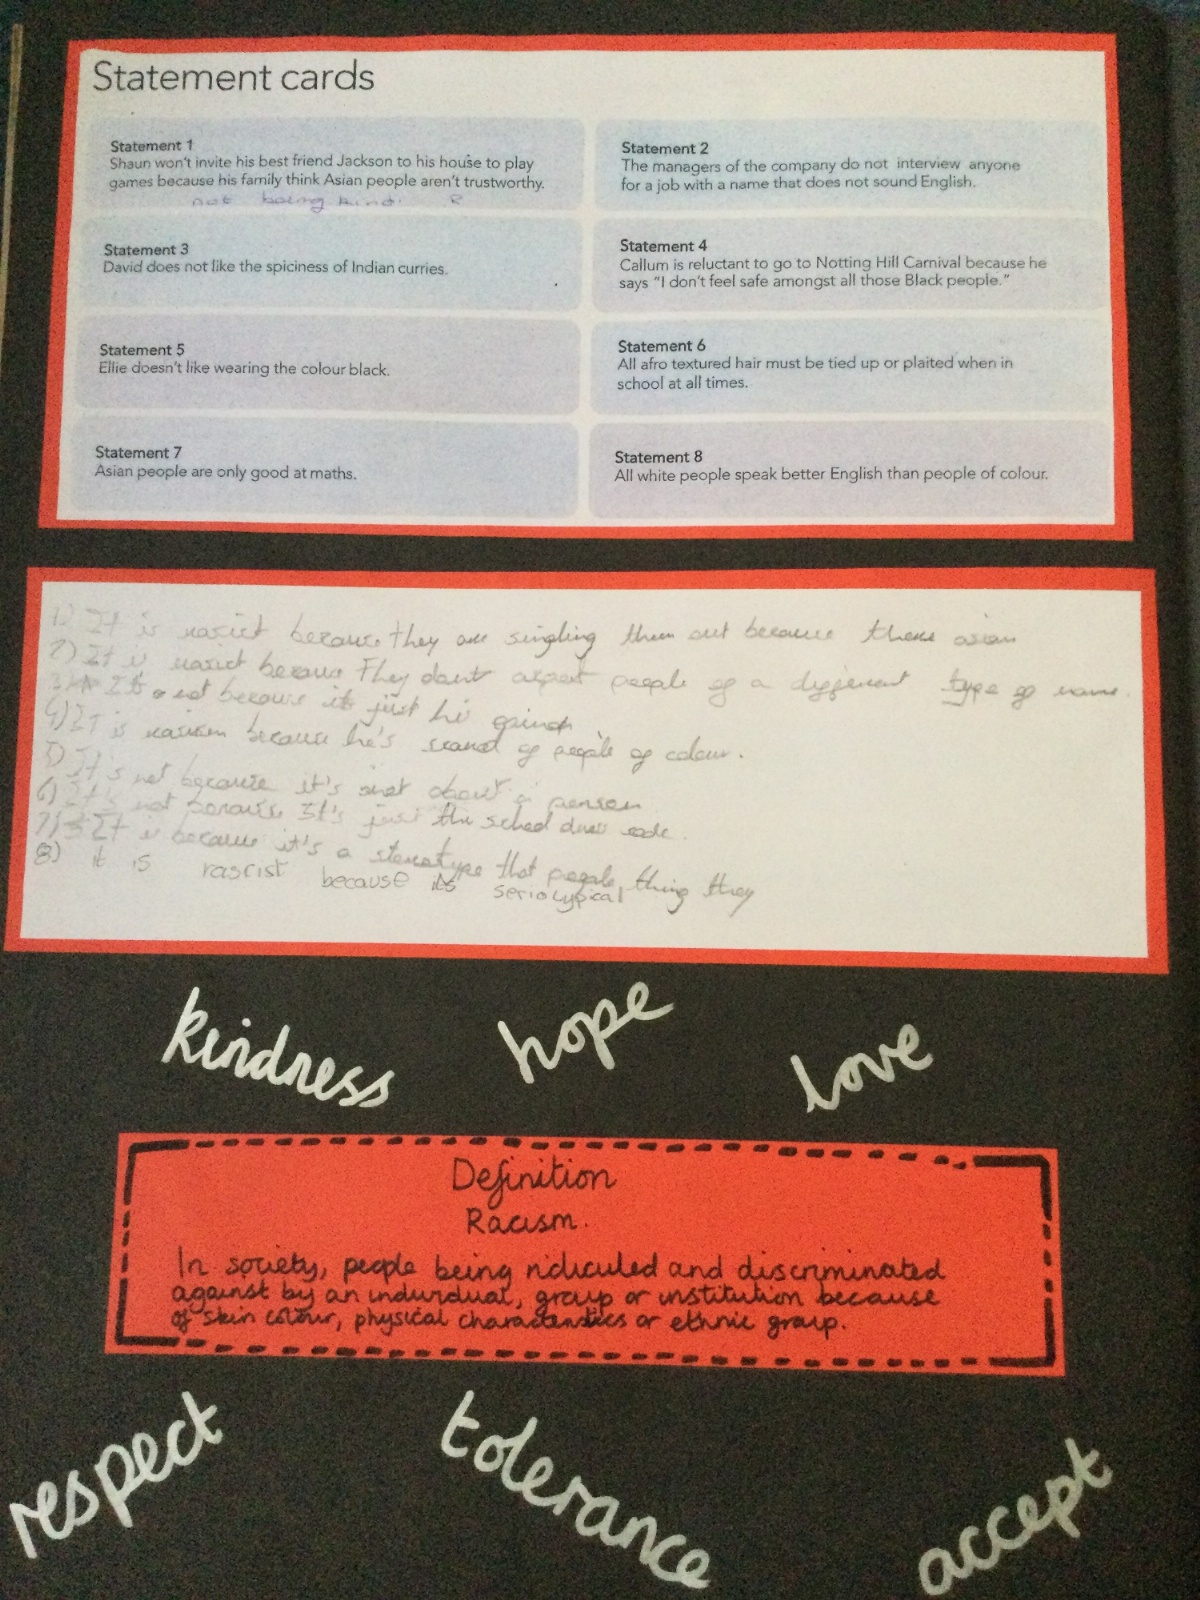 Statement cards
Statement 1
Shaun won't invite his best friend Jackson to his house to play
games because his family think Asian people aren't trustworthy.
not being kind. R
Statement 2
The managers of the company do not interview anyone
for a job with a name that does not sound English.
Statement 3
David does not like the spiciness of Indian curries.
Statement 4
Callum is reluctant to go to Notting Hill Carnival because he
says "I don't feel safe amongst all those Black people."
Statement 5
Ellie doesn't like wearing the colour black.
Statement 6
All afro textured hair must be tied up or plaited when in
school at all times.
Statement 7
Asian people are only good at maths.
Statement 8
All white people speak better English than people of colour.
1) It is rasict because they are singling them out because there asian
2) It is rasict because They don't people of a different type of name.
3) not because it just his
4) It is rasicm because he's scared of people of colour.
5) It's not because it's not about a person
6) It's not because It's just the school dress code.
7) It is because it's a stereotype that people thing they
8) it is rascist because its seriotypical
kindness
hope
love
Definition
Racism.
In society, people being ridiculed and discriminated
against by an individual, group or institution because
of skin colour, physical characteristics or ethnic group.
respect
tolerance
accept